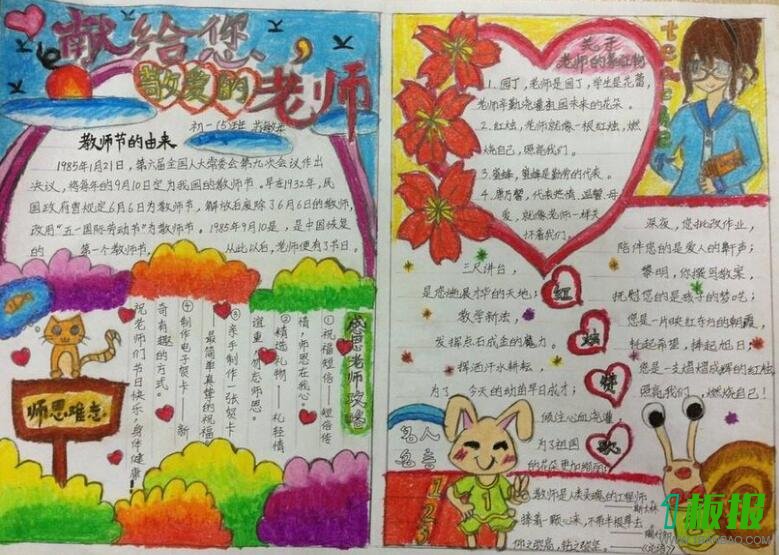 献给您,
敬爱的老师
初一(5)班
教师节的由来
1985年1月21日,第六届全国人大常委会第九次会议作出
决议,将每年的9月10日定为我国的教师节。早在1932年,民
国政府曾规定6月6日为教师节,解放后废除了6月6日的教师节,
改用"五一国际劳动节"为教师节。1985年9月10是,是中国恢复
的 第一个教师节, 从此以后,老师便有了节日。
感恩老师攻略
①祝福短信——短信传
情,师恩在我心。
②精选礼物——礼轻情
谊重,勿忘师恩。
③亲手制作一张贺卡——
最简单真挚的祝福
④制作电子贺卡——新
奇有趣的方式。
祝老师们节日快乐,身体健康!
师恩难忘
关于
老师的象征物
1.园丁,老师是园丁,学生是花蕾,
老师辛勤浇灌祖国未来的花朵。
2.红烛,老师就像一根红烛,燃
烧自己,照亮我们。
3.蜜蜂,蜜蜂是勤劳的代表。
4.康乃馨,代表热情、温馨、母
爱,就像老师一样关
怀着我们。
teacher
红烛赞歌
三尺讲台,
是您施展才华的天地;
教学新法,
发挥点石成金的魔力。
挥洒汗水耕耘,
为了 今天的幼苗早日成才;
倾注心血浇灌
为了祖国
的花朵更加绚丽。
深夜,您批改作业,
陪伴您的是爱人的鼾声;
黎明,你撰写教案,
抚慰您的是孩子的梦呓;
您是一片映红东方的朝霞,
托起希望,捧起旭日;
您是一支熠熠成辉的红烛
照亮我们,燃烧自己!
名人
名言
1
教师是人类灵魂的工程师
斯大林
捧着一颗心来,不带半根草去
1板报
WWW.1BANBAO.COM